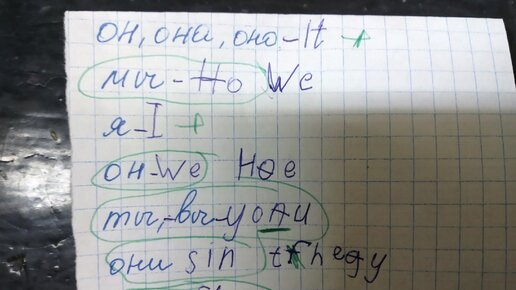 он, она, оно - It +
мы - Ho We
я - I +
он - We Hee
ты, - вы - yoAu
они sin thegy